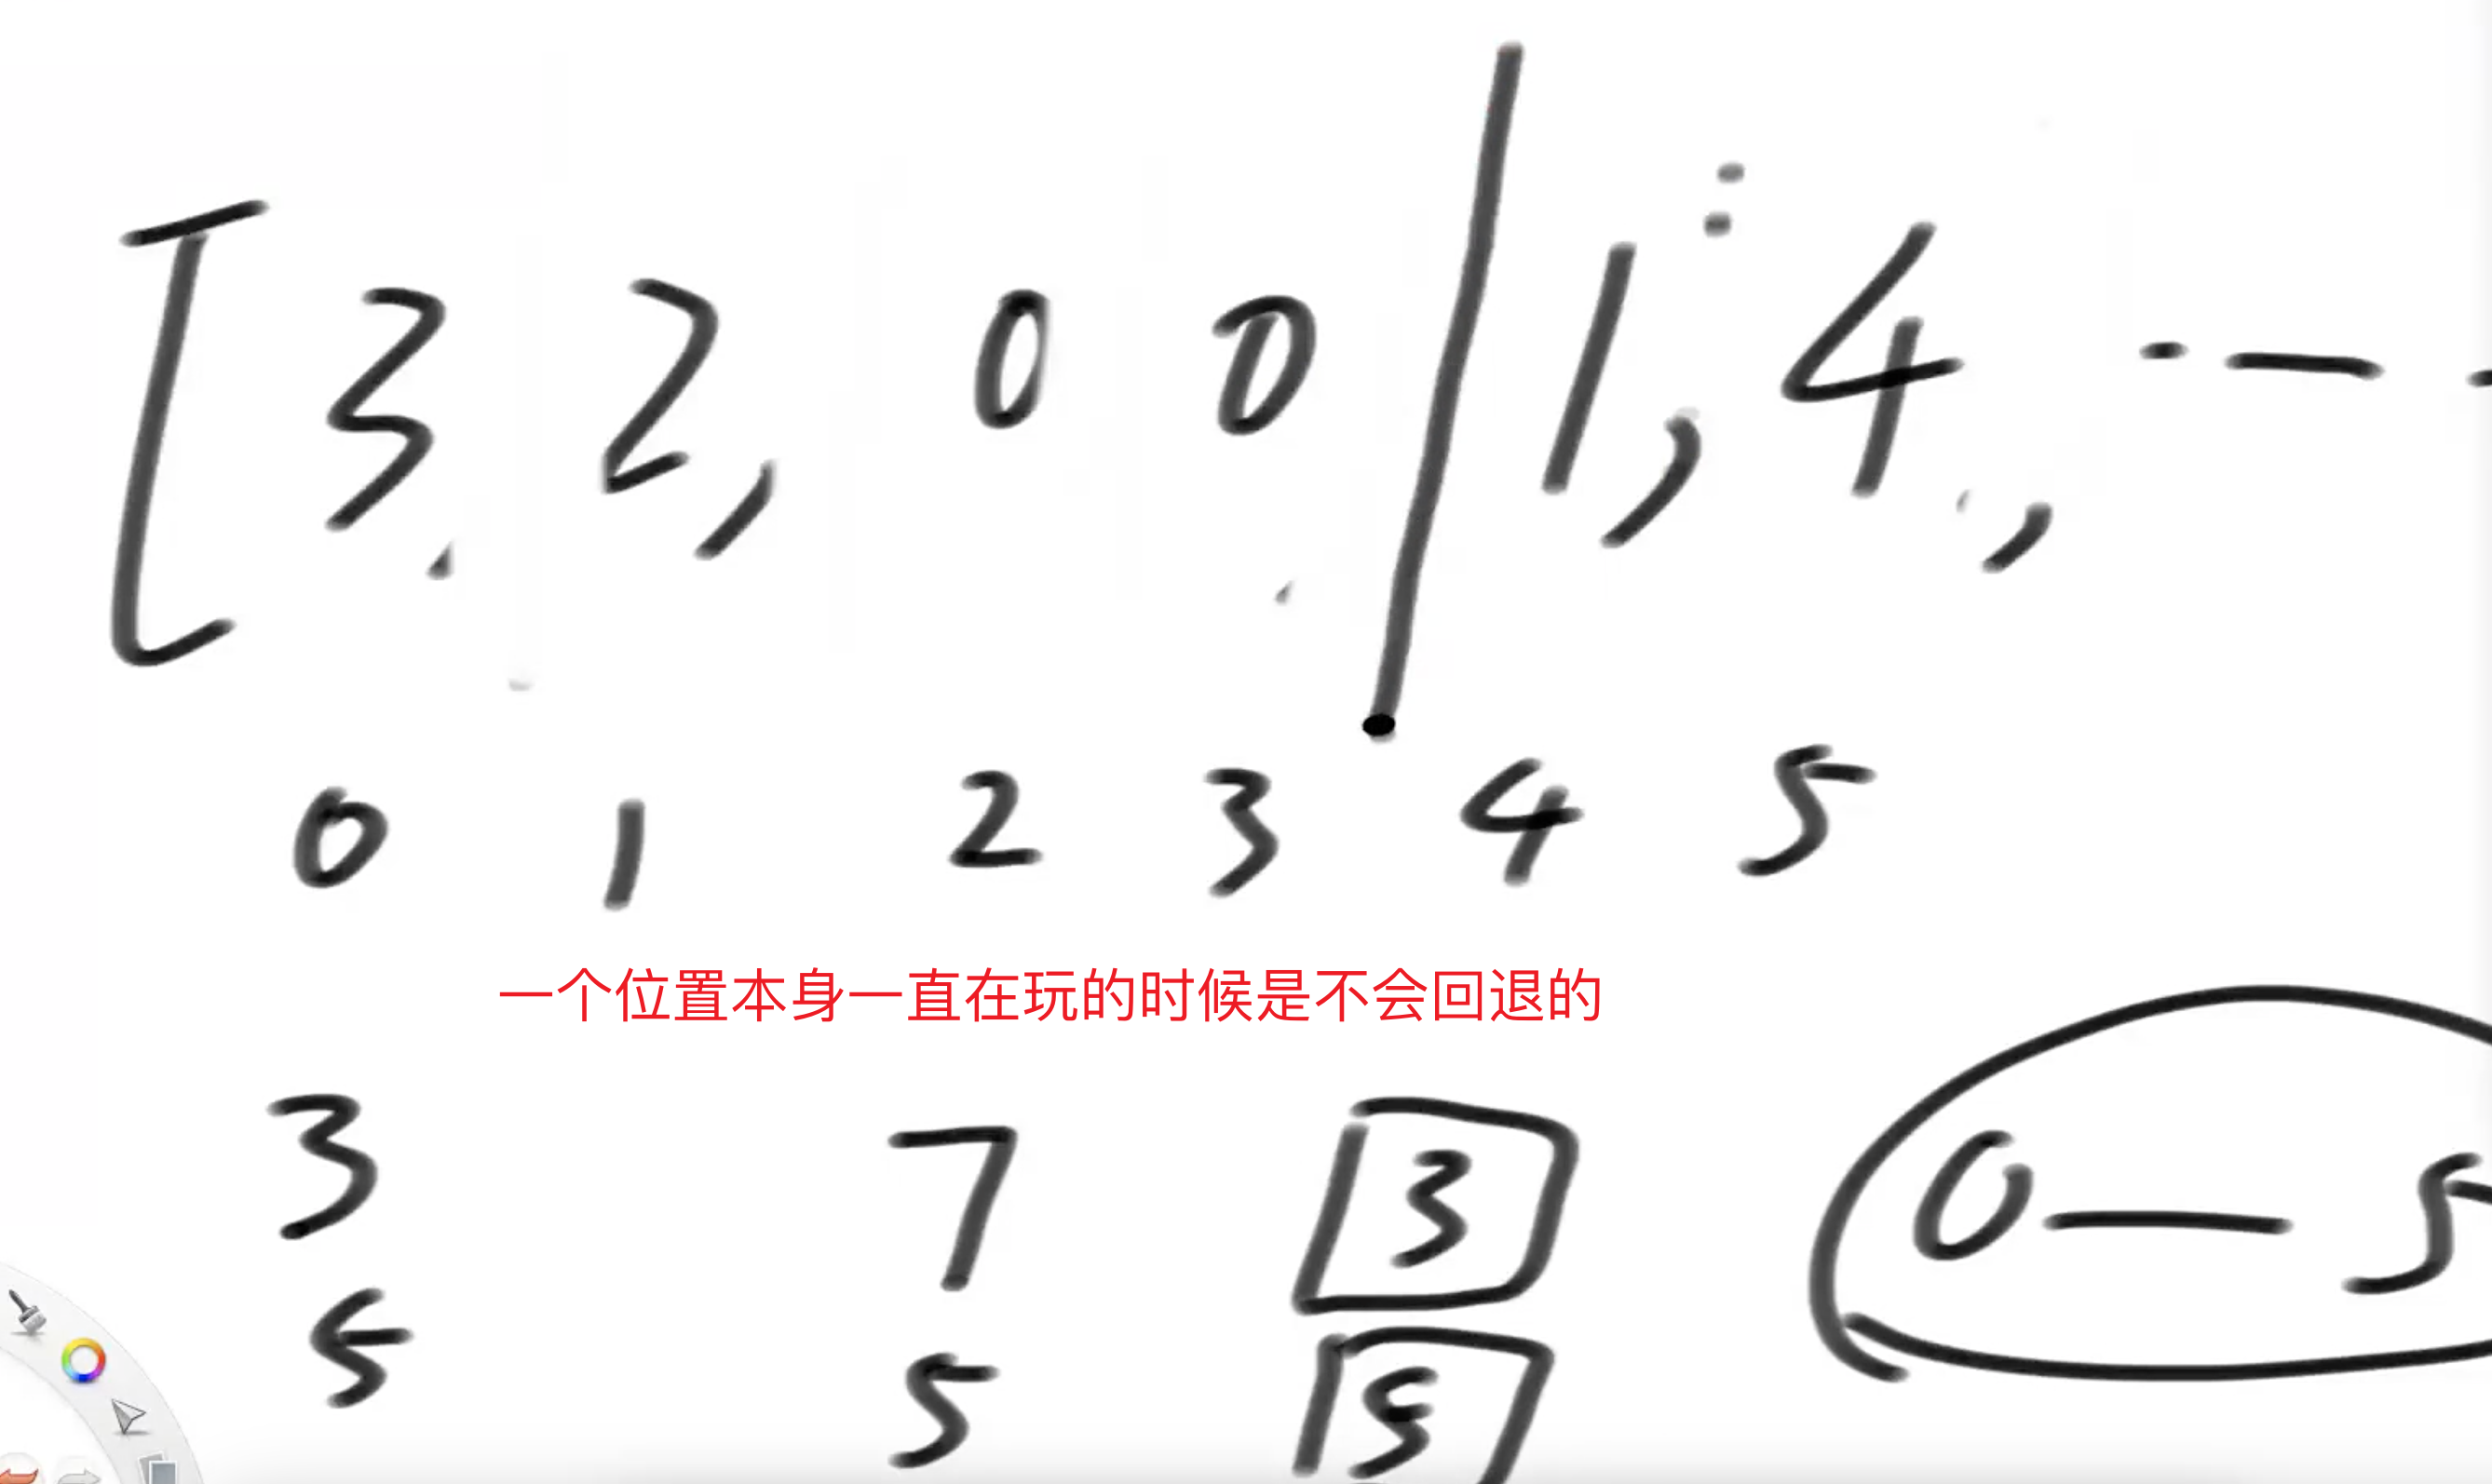 [3, 2, 0 0 | 1, 4, ---
0 1 2 3 4 5
一个位置本身一直在玩的时候是不会回退的
3 7 3 0—5
5 5 5